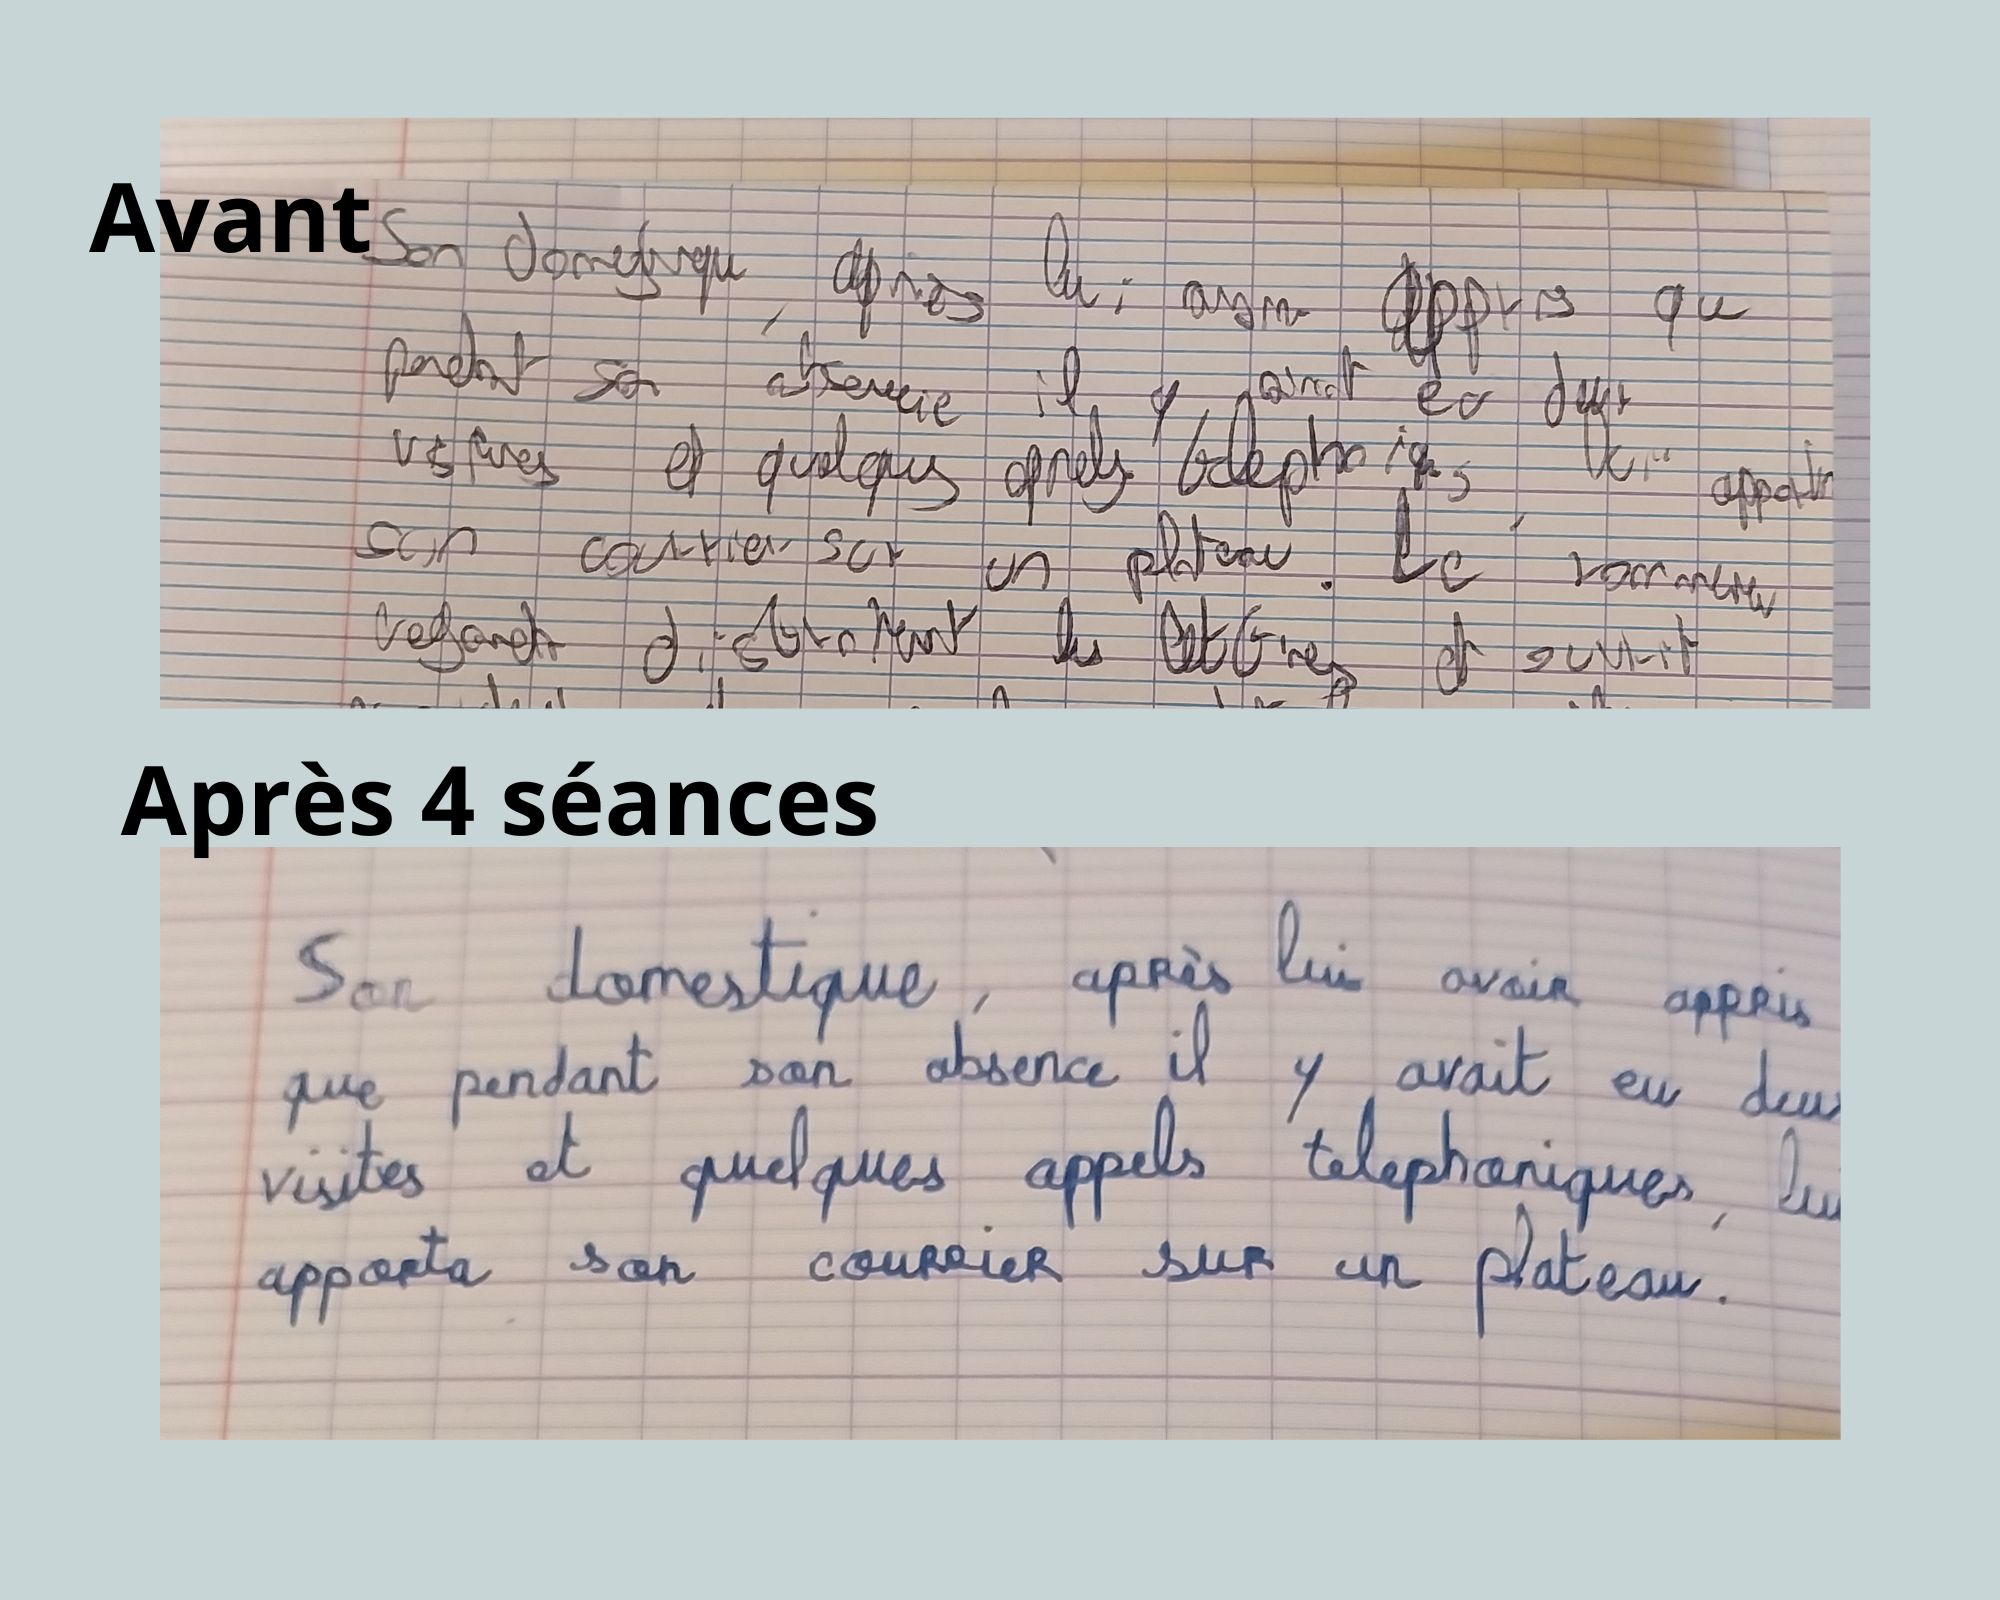 Avant
Son domestique, après lui avoir appris que
pendant son absence il y avait eu deux
visites et quelques appels téléphoniques, lui
son courrier sur un plateau. Le romancier
regarda distraitement les lettres et ouvrit
Après 4 séances
Son domestique, après lui avoir appris
que pendant son absence il y avait eu deux
visites et quelques appels telephoniques, lui
apporta son courrier sur un plateau.